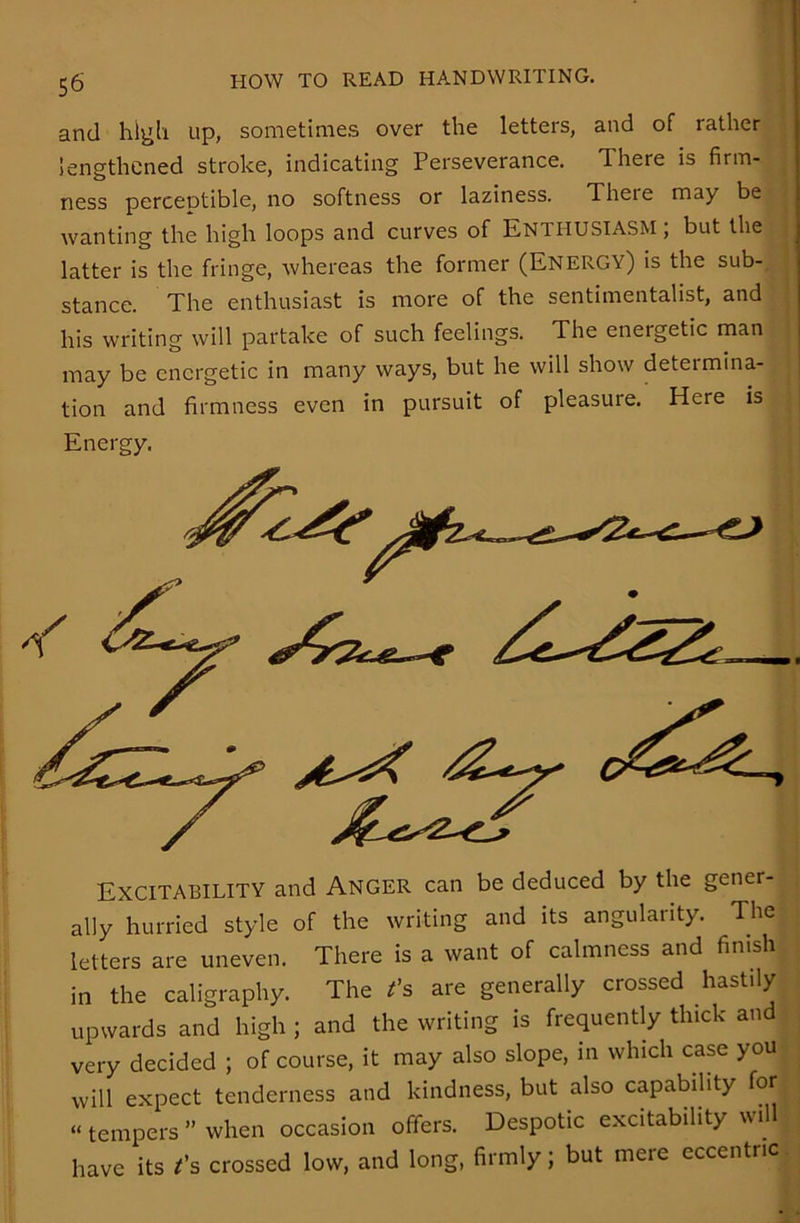 56 HOW TO READ HANDWRITING.
and high up, sometimes over the letters, and of rather
lengthened stroke, indicating Perseverance. There is firm-
ness perceptible, no softness or laziness. There may be
wanting the high loops and curves of ENTHUSIASM; but the
latter is the fringe, whereas the former (ENERGY) is the sub-
stance. The enthusiast is more of the sentimentalist, and
his writing will partake of such feelings. The energetic man
may be energetic in many ways, but he will show determina-
tion and firmness even in pursuit of pleasure. Here is
Energy.
EXCITABILITY and ANGER can be deduced by the gener-
ally hurried style of the writing and its angularity. The
letters are uneven. There is a want of calmness and finish
in the caligraphy. The t's are generally crossed hastily
upwards and high; and the writing is frequently thick and
very decided; of course, it may also slope, in which case you
will expect tenderness and kindness, but also capability for
"tempers" when occasion offers. Despotic excitability will
have its t's crossed low, and long, firmly; but mere eccentric